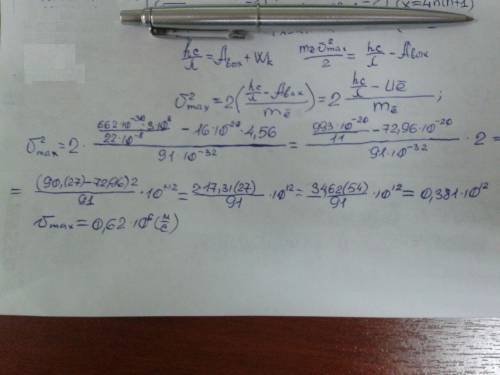 (x=4n(n+1)
hc/λ = Aвых + Wk   mēv²max/2 = hc/λ − Aвых
v²max = 2((hc/λ − Aвых)/mē) = 2 (hc/λ − Uē)/mē ;
v²max = 2 · (662·10⁻³⁶·3·10⁸/22·10⁻⁸ − 16·10⁻²⁰·4,56)/(91·10⁻³²) = (993·10⁻²⁰/11 − 72,96·10⁻²⁰)/(91·10⁻³²) · 2 =
= (90,(27)−72,96)2/91 · 10⁺¹² = 2·17,31(27)/91 · 10¹² = 3462(54)/91 · 10¹² = 0,381·10¹²
vmax = 0,62·10⁶ (м/с)